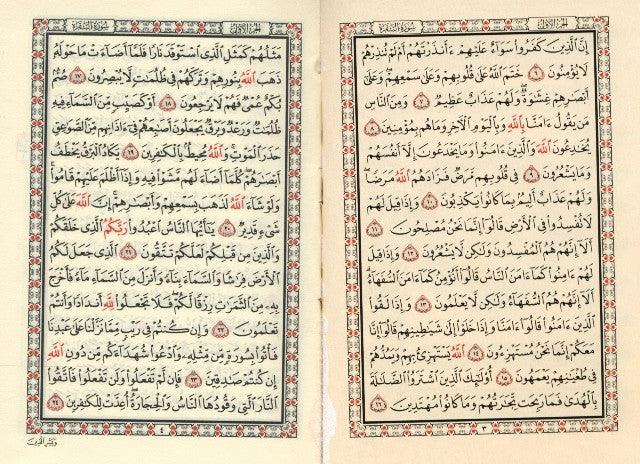 الجزء الأول سُورَةُ البَقَرَة
إِنَّ الَّذِينَ كَفَرُوا سَوَاءٌ عَلَيْهِمْ ءَأَنذَرْتَهُمْ أَمْ لَمْ تُنذِرْهُمْ
لَا يُؤْمِنُونَ ٦ خَتَمَ اللَّهُ عَلَىٰ قُلُوبِهِمْ وَعَلَىٰ سَمْعِهِمْ وَعَلَىٰ
أَبْصَٰرِهِمْ غِشَٰوَةٌ وَلَهُمْ عَذَابٌ عَظِيمٌ ٧ وَمِنَ النَّاسِ
مَن يَقُولُ ءَامَنَّا بِاللَّهِ وَبِالْيَوْمِ الْآخِرِ وَمَا هُم بِمُؤْمِنِينَ ٨
يُخَٰدِعُونَ اللَّهَ وَالَّذِينَ ءَامَنُوا وَمَا يَخْدَعُونَ إِلَّا أَنفُسَهُمْ
وَمَا يَشْعُرُونَ ٩ فِي قُلُوبِهِم مَّرَضٌ فَزَادَهُمُ اللَّهُ مَرَضًا
وَلَهُمْ عَذَابٌ أَلِيمٌ بِمَا كَانُوا يَكْذِبُونَ ١٠ وَإِذَا قِيلَ لَهُمْ
لَا تُفْسِدُوا فِي الْأَرْضِ قَالُوا إِنَّمَا نَحْنُ مُصْلِحُونَ ١١
أَلَا إِنَّهُمْ هُمُ الْمُفْسِدُونَ وَلَٰكِن لَّا يَشْعُرُونَ ١٢ وَإِذَا قِيلَ
لَهُمْ ءَامِنُوا كَمَا ءَامَنَ النَّاسُ قَالُوا أَنُؤْمِنُ كَمَا ءَامَنَ السُّفَهَاءُ
أَلَا إِنَّهُمْ هُمُ السُّفَهَاءُ وَلَٰكِن لَّا يَعْلَمُونَ ١٣ وَإِذَا لَقُوا
الَّذِينَ ءَامَنُوا قَالُوا ءَامَنَّا وَإِذَا خَلَوْا إِلَىٰ شَيَٰطِينِهِمْ قَالُوا إِنَّا
مَعَكُمْ إِنَّمَا نَحْنُ مُسْتَهْزِءُونَ ١٤ اللَّهُ يَسْتَهْزِئُ بِهِمْ وَيَمُدُّهُمْ
فِي طُغْيَٰنِهِمْ يَعْمَهُونَ ١٥ أُولَٰئِكَ الَّذِينَ اشْتَرَوُا الضَّلَٰلَةَ
بِالْهُدَىٰ فَمَا رَبِحَت تِّجَٰرَتُهُمْ وَمَا كَانُوا مُهْتَدِينَ ١٦
٣
الجزء الأول سُورَةُ البَقَرَة
مَثَلُهُمْ كَمَثَلِ الَّذِي اسْتَوْقَدَ نَارًا فَلَمَّا أَضَاءَتْ مَا حَوْلَهُ
ذَهَبَ اللَّهُ بِنُورِهِمْ وَتَرَكَهُمْ فِي ظُلُمَٰتٍ لَّا يُبْصِرُونَ ١٧ صُمٌّ
بُكْمٌ عُمْيٌ فَهُمْ لَا يَرْجِعُونَ ١٨ أَوْ كَصَيِّبٍ مِّنَ السَّمَاءِ فِيهِ
ظُلُمَٰتٌ وَرَعْدٌ وَبَرْقٌ يَجْعَلُونَ أَصَٰبِعَهُمْ فِي ءَاذَانِهِم مِّنَ الصَّوَٰعِقِ
حَذَرَ الْمَوْتِ وَاللَّهُ مُحِيطٌ بِالْكَٰفِرِينَ ١٩ يَكَادُ الْبَرْقُ يَخْطَفُ
أَبْصَٰرَهُمْ كُلَّمَا أَضَاءَ لَهُم مَّشَوْا فِيهِ وَإِذَا أَظْلَمَ عَلَيْهِمْ قَامُوا
وَلَوْ شَاءَ اللَّهُ لَذَهَبَ بِسَمْعِهِمْ وَأَبْصَٰرِهِمْ إِنَّ اللَّهَ عَلَىٰ كُلِّ
شَيْءٍ قَدِيرٌ ٢٠ يَٰأَيُّهَا النَّاسُ اعْبُدُوا رَبَّكُمُ الَّذِي خَلَقَكُمْ
وَالَّذِينَ مِن قَبْلِكُمْ لَعَلَّكُمْ تَتَّقُونَ ٢١ الَّذِي جَعَلَ لَكُمُ
الْأَرْضَ فِرَٰشًا وَالسَّمَاءَ بِنَاءً وَأَنزَلَ مِنَ السَّمَاءِ مَاءً فَأَخْرَجَ
بِهِ مِنَ الثَّمَرَٰتِ رِزْقًا لَّكُمْ فَلَا تَجْعَلُوا لِلَّهِ أَندَادًا وَأَنتُمْ
تَعْلَمُونَ ٢٢ وَإِن كُنتُمْ فِي رَيْبٍ مِّمَّا نَزَّلْنَا عَلَىٰ عَبْدِنَا
فَأْتُوا بِسُورَةٍ مِّن مِّثْلِهِ وَادْعُوا شُهَدَاءَكُم مِّن دُونِ اللَّهِ
إِن كُنتُمْ صَٰدِقِينَ ٢٣ فَإِن لَّمْ تَفْعَلُوا وَلَن تَفْعَلُوا فَاتَّقُوا
النَّارَ الَّتِي وَقُودُهَا النَّاسُ وَالْحِجَارَةُ أُعِدَّتْ لِلْكَٰفِرِينَ ٢٤
٤
وَبَشِّرِ الَّذِينَ